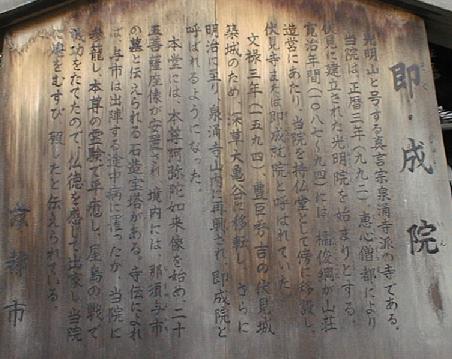 即・成院
そく じょう いん
光明山と号する真言宗泉涌寺派の寺である。
当院は、正暦三年(九九二)恵心僧都により
伏見に建立された光明院を始まりとする。
寛治年間(一〇八七〜九四)には、橘俊綱が山荘
造営にあたり、当院を持仏堂として傍に移設し、
伏見寺または即成就院と呼ばれていた。
文禄三年(一五九四)、豊臣秀吉の伏見城
築城のため、深草大亀谷に移転し、さらに
明治に至り、泉涌寺山内に再興され、即成院と
呼ばれるようになった。
本堂には、本尊阿弥陀如来像を始め、二十
五菩薩座像が安置され、境内には、那須与市
の墓と伝えられる石造宝塔がある。寺伝によれ
ば、与市は出陣する途中病に罹ったが、当院に
参籠し、本尊の霊験で平癒し、屋島の戦で
武功をたてたので、仏徳を感じて出家し、当院
に庵をむすび、
したと伝えられている。
京都市